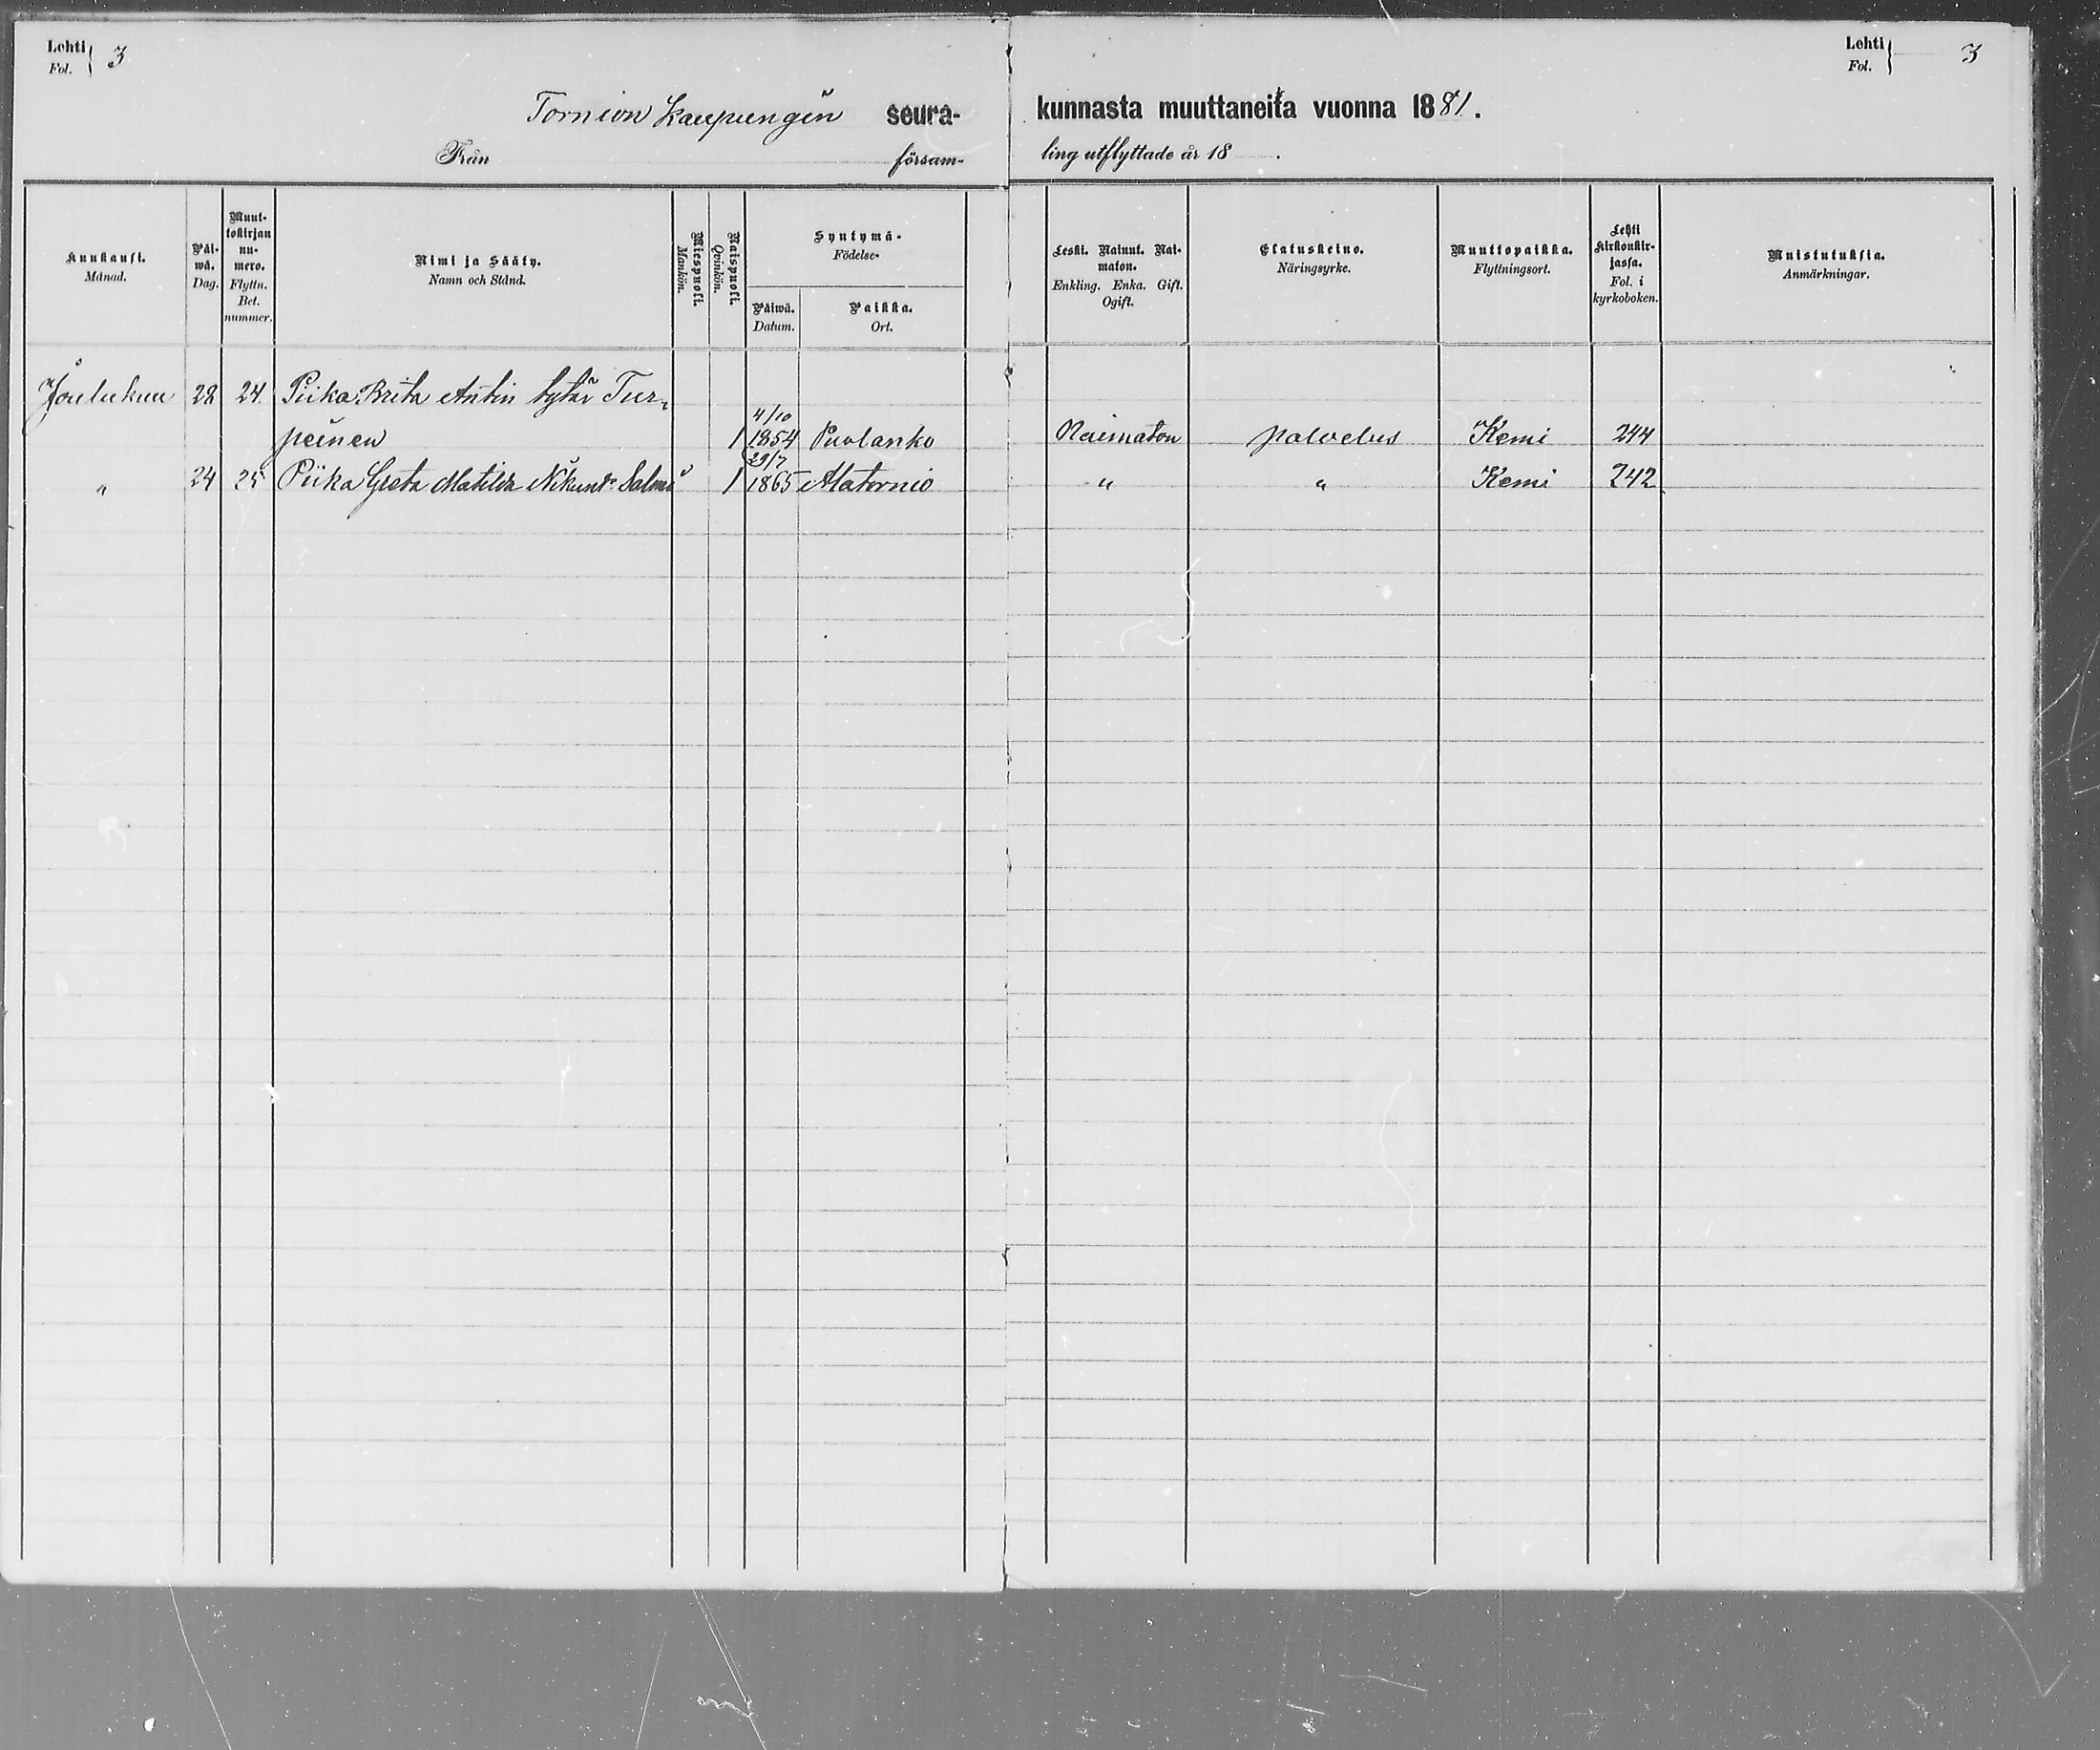 Lehti
Fol. } 3
Lehti
Fol. } 3
Tornion Kaupungin seura- kunnasta muuttaneita vuonna 1881.
Från försam- ling utflyttade år 18 .
Kuukausi.
Månad.
Päi-
wä.
Dag.
Muut-
tokirjan
nu-
mero.
Flyttn.
Bet.
nummer.
Nimi ja Sääty.
Namn och Stånd.
Miespuoli.
Mankön.
Naispuoli.
Qvinkön.
Syntymä-
Födelse-
Päiwä.
Datum.
Paikka.
Ort.
Leski. Nainut. Nai-
maton.
Enkling. Enka. Gift.
Ogift.
Elatuskeino.
Näringsyrke.
Muuttopaikka.
Flyttningsort.
Lehti
Kirkonkir-
jassa.
Fol. i
kyrkoboken.
Muistutuksia.
Anmärkningar.
Joulukuu 28 24 Piika Brita Antin tytär Tur-
4/10
peinen 1 1854 Puolanko Naimaton palvelus Kemi 244
29/7
" 24 25 Piika Greta Matilda Salmi 1 1865 Alatornio " " Kemi 242